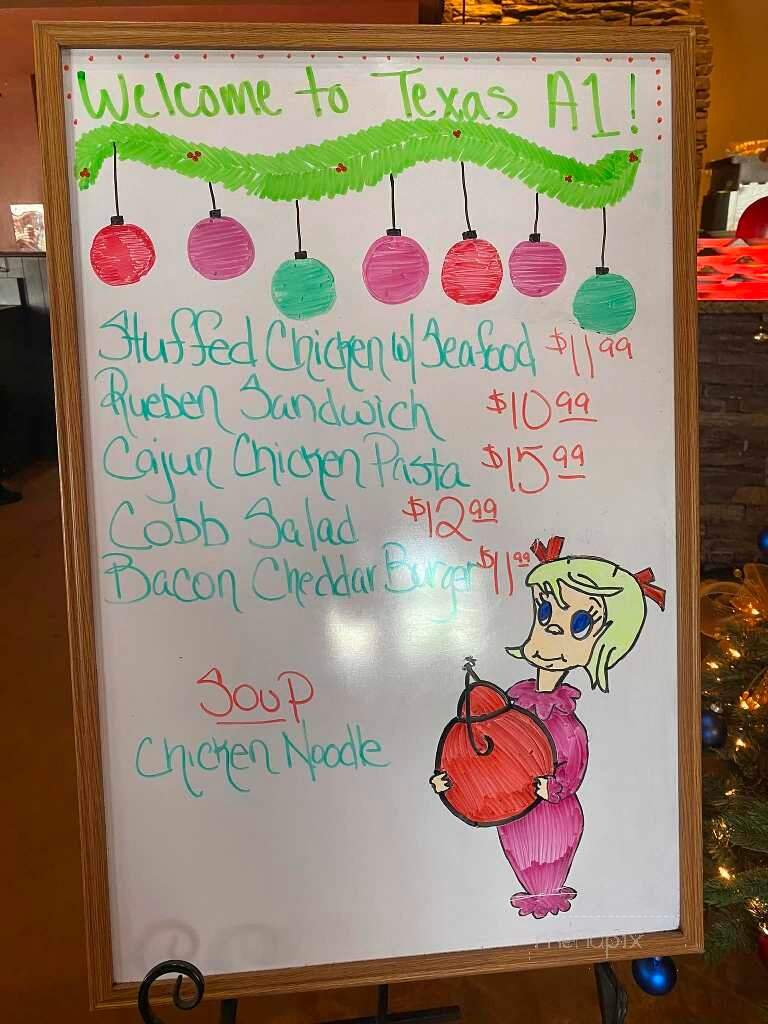 Welcome to Texas A1!
Stuffed Chicken w/ Seafood $11.99
Rueben Sandwich $10.99
Cajun Chicken Pasta $15.99
Cobb Salad $12.99
Bacon Cheddar Burger $11.99
Soup
Chicken Noodle
menupix